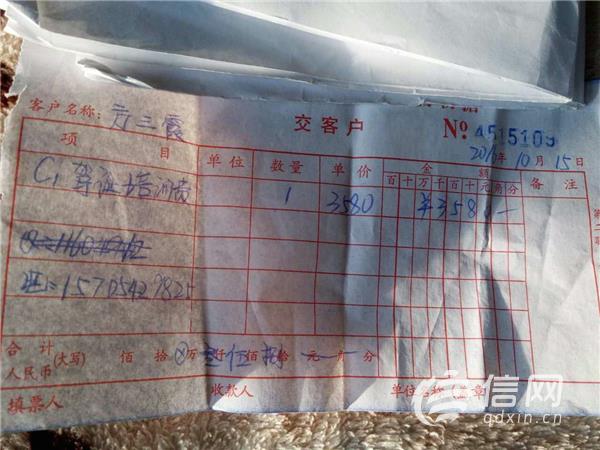 客户名称: 方三霞
交客户
№ 4515109
2016年10月15日
项目 单位 数量 单价 金额 备注
百 十 万 千 百 十 元 角 分
C1 驾证培训费 1 3580 ¥3580—
15705429825
合计 人民币 (大写) 佰 拾 ⊗万 叁仟 伍佰 捌拾 元 角 分
填票人 收款人 单位名称 盖章
信网
qdxin.cn